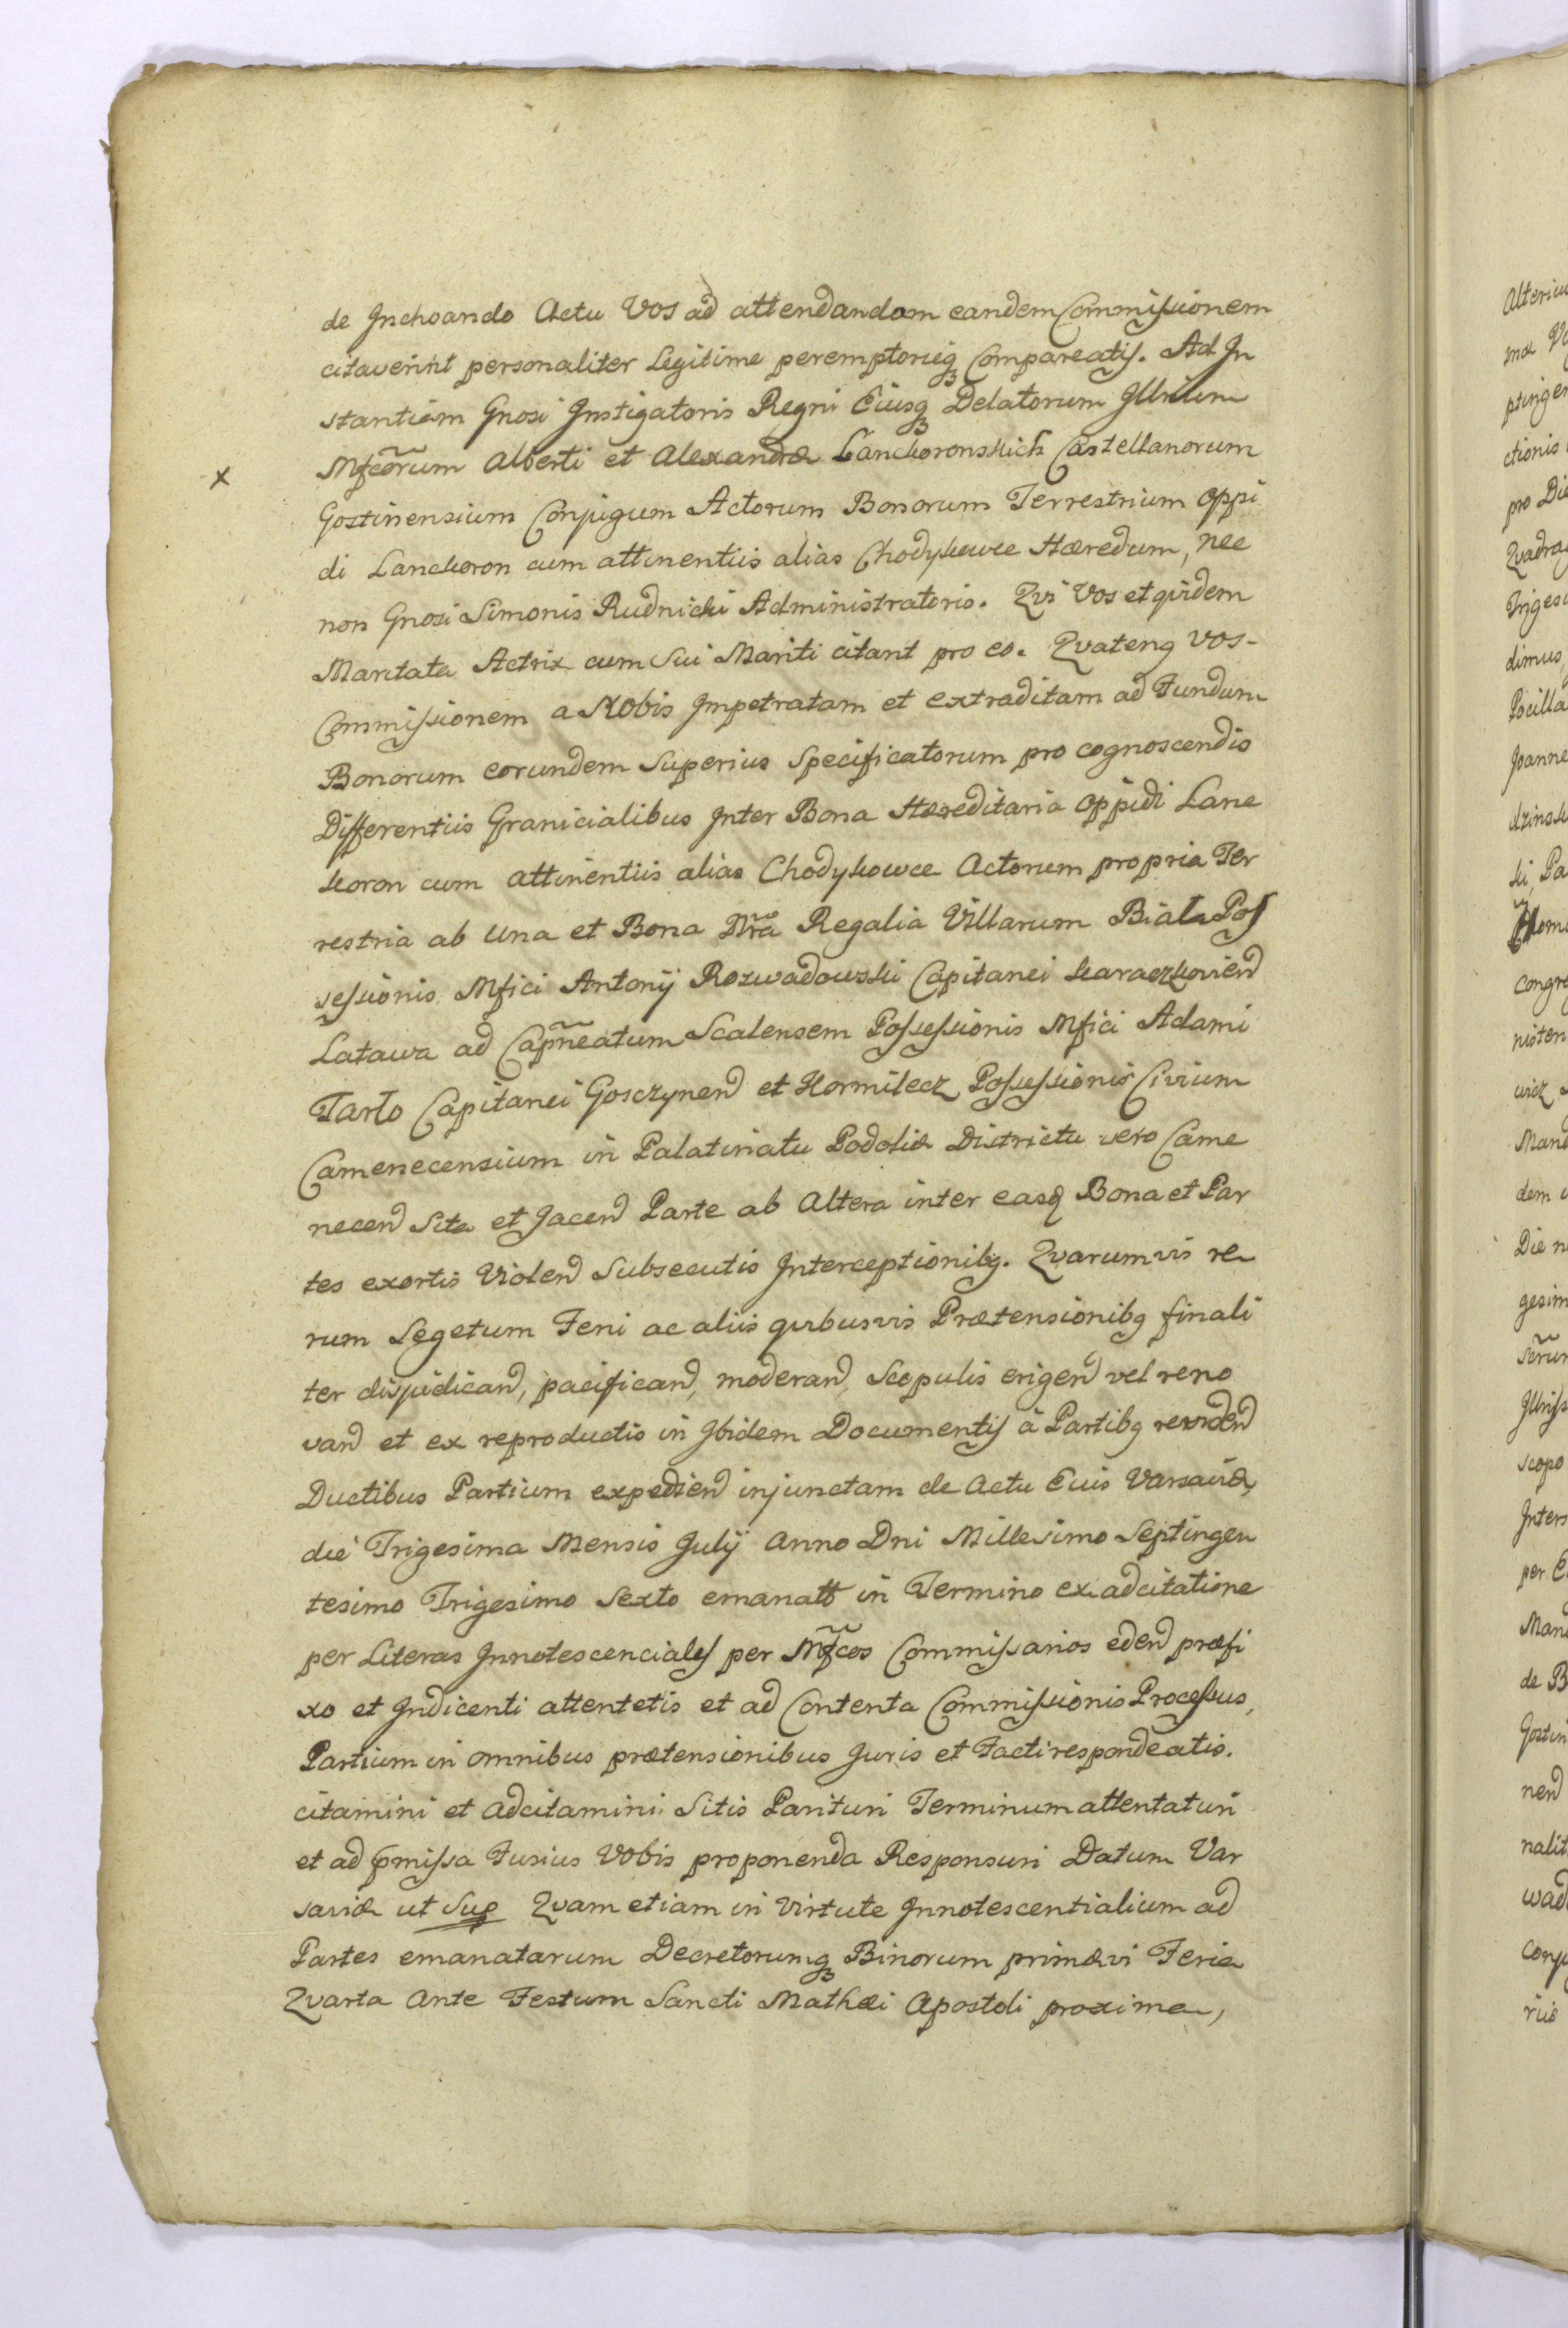 de Inchoando Actu Vos ad attendandam eandem Commissionem
citaverint personaliter Legitime peremptorieq Compareatis. Ad In
stantiam Gnosi Instigatoris Regni Eiusq Delatorum Illrium
Mfcorum Alberti et Alexandræ Lanckoronskich Castellanorum
x
Gostinensium Conjugum Actorum Bonorum Terrestrium Oppi
di Lanckoron cum attinentiis alias Chodykowce Hæredum, nec
non Gnosi Simonis Rudnicki Administratoris. Qvi Vos et qvidem
Maritata Actrix cum Sui Mariti citant pro eo. Qvateng Vos-
Commissionem a Nobis Impetratam et extraditam ad Fundum
Bonorum eorundem Superius Specificatorum pro cognoscendis
Differentiis Granicialibus Inter Bona Hæreditaria Oppidi Lanc
koron cum attinentiis alias Chodykowce Actorum propria Ter
restria ab Una et Bona Nra Regalia Villarum Biala Pos
sessionis Mfici Antonij Rozwadowski Capitanei karaczkovien
Latawa ad Capneatum Scalensem Possessionis Mfici Adami
Tarło Capitanei Gosczynen et Hormilecz Possessionis Civium
Camenecensium in Palatinatu Podoliæ Districtu vero Came
necen Sita et Jacen Parte ab Altera inter easq Bona et Par
tes exortis Violen Subsecutis Interceptionibq. Qvarumvis re
rum Segetum Feni ac aliis qvibusvis Prætensionibq finali
ter disjudican, pacifican, moderan, Scopulis erigen vel reno
van et ex reproductis in Ibidem Documentis a Partibq reviden
Ductibus Partium expedien injunctam de Actu Euis Varsaviæ,
die Trigesima Mensis Julij Anno Dni Millesimo Septingen
tesimo Trigesimo Sexto emanatt in Termino ex adcitatione
per Literas Innotescenciales per Mfcos Commissarios eden præfi
xo et Indicenti attentetis et ad Contenta Commissionis Processus,
Partium in omnibus prætensionibus Juris et Facti respondeatis.
citamini et adcitamini Sitis Parituri Terminum attentaturi
et ad pmissa Fusius Vobis proponenda Responsuri Datum Var
saviæ ut Sup Qvam etiam in Virtute Innotescentialium ad
Partes emanatarum Decretorumq Binorum primævi Feria
Qvarta Ante Festum Sancti Mathæi Apostoli proxima,